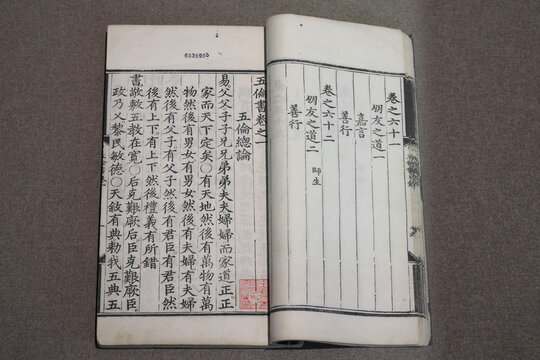 卷之六十一
朋友之道一
嘉言
善行
卷之六十二
朋友之道二 師生
善行
6028905
五倫書卷之一
五倫總論
易父父子子兄兄弟弟夫夫婦婦而家道正正
家而天下定矣○有天地然後有萬物有萬
物然後有男女有男女然後有夫婦有夫婦
然後有父子有父子然後有君臣有君臣然
後有上下有上下然後禮義有所錯
書敬敷五教在寬○后克艱厥后臣克艱厥臣
政乃乂黎民敏德○天敘有典勅我五典五